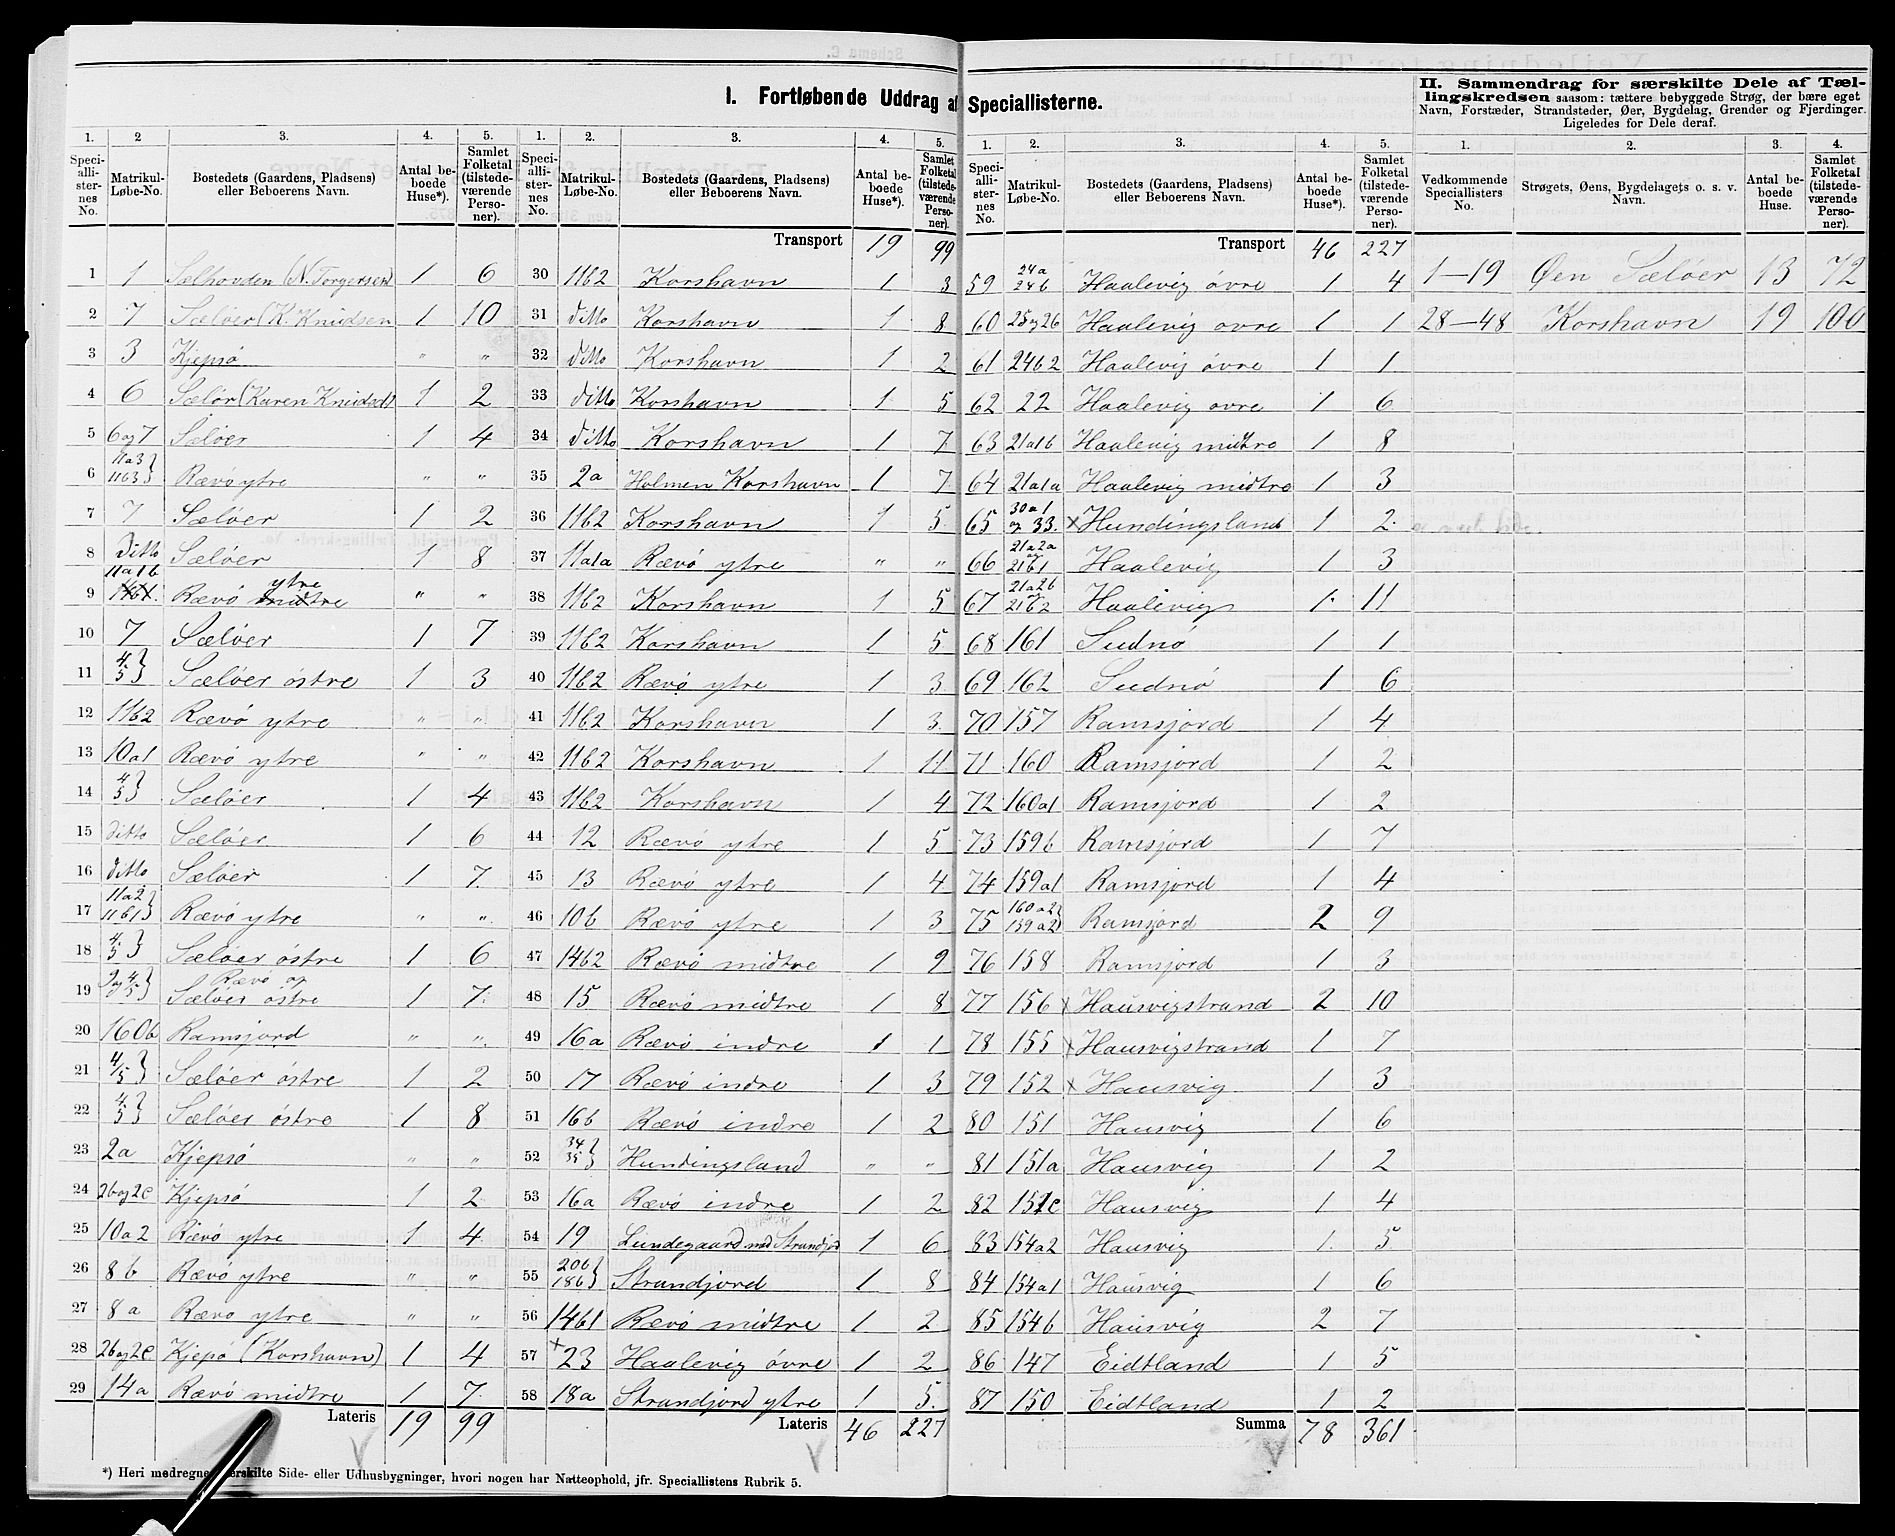 I. Fortløbende Uddrag af Speciallisterne.
II. Sammendrag for særskilte Dele af Tæl-
lingskredsen saasom: tættere bebyggede Strøg, der bære eget
Navn, Forstæder, Strandsteder, Øer, Bygdelag, Grender og Fjerdinger.
Ligeledes for Dele deraf.
1. 2 3. 4. 5.
Speciallisternes No. Matrikul-Løbe-No. Bostedets (Gaardens, Pladsens) eller Beboerens Navn. Antal beboede Huse*). Samlet Folketal (tilstedeværende Personer).
1 1 Sælhovden (N. Torgersen) 1 6
2 7 Sælöer (K. Knudsen 1 10
3 3 Kjepsö " "
4 6 Sælör (Karen Knudsdt) 1 2
5 6og7 Sælöer 1 4
6 11a3 11b3} Rævö ytre " "
7 7 Sælöer 1 2
8 Ditto Sælöer 1 8
9 11a1b Rævö ytre " "
10 7 Sælöer 1 7
11 4. 5} Sælöer östre 1 3
12 11b2 Rævö ytre " "
13 10a1 Rævö ytre " "
14 4 5} Sælöer 1 4
15 ditto Sælöer 1 6
16 ditto Sælöer 1 7
17 11a2 11b1} Rævö ytre " "
18 4. 5} Sælöer östre 1 6
19 9og4. 5} Rævö og Sælöer östre 1 7
20 160b Ramsjord " "
21 4/5} Sælöer östre 1 2
22 4. 5} Sælöer östre 1 8
23 2a Kjepsö " "
24 2bog2c Kjepsö 1 2
25 10a2 Rævö ytre 1 4
26 8b Rævö ytre " "
27 8a Rævö ytre " "
28 2bog2c Kjepsö (Korshavn) 1 4
29 14a Rævö midtre 1 7
Lateris 19 99
1. 2. 3. 4. 5.
Speciallisternes No. Matrikul-Løbe-No. Bostedets (Gaardens, Pladsens) eller Beboerens Navn. Antal beboede Huse*). Samlet Folketal (tilstedeværende Personer).
Transport 19 99
30 11b2 Korshavn 1 3
31 ditto Korshavn 1 8
32 ditto Korshavn 1 2
33 ditto Korshavn 1 5
34 ditto Korshavn 1 7
35 2a Holmen Korshavn 1 7
36 11b2 Korshavn 1 5
37 11a1a Rævö ytre " "
38 11b2 Korshavn 1 5
39 11b2 Korshavn 1 5
40 11b2 Rævö ytre 1 3
41 11b2 Korshavn 1 3
42 11b2 Korshavn 1 11
43 11b2 Korshavn 1 4
44 12 Rævö ytre 1 5
45 13 Rævö ytre 1 4
46 10b Rævö ytre 1 3
47 14b2 Rævö midtre 1 9
48 15 Rævö midtre 1 8
49 16a Rævö indre 1 1
50 17 Rævö indre 1 3
51 16b Rævö indre 1 2
52 34. 35} Hundingsland " "
53 16a Rævö indre 1 2
54 19 Lundegaard med Strandjord 1 6
55 20b 18b} Strandjord 1 8
56 14b1 Rævö midtre 1 2
57 + 23 Haalevig övre 1 2
58 18a Strandjord ytre 1 5
Lateris 46 227
1. 2. 3. 4. 5.
Speciallisternes No. Matrikul-Løbe-No. Bostedets (Gaardens, Pladsens) eller Beboerens Navn. Antal beboede Huse*). Samlet Folketal (tilstedeværende Personer).
Transport 46 227
59 24a 24b Haalevig övre 1 4
60 25og26 Haalevig övre 1 1
61 24b2 Haalevig övre 1 1
62 22 Haalevig övre 1 6
63 21a1b Haalevig midtre 1 8
64 21a1a Haalevig midtre 1 3
65 30a1 og 33. x Hundingsland 1 2
66 21a2a og 21b1 Haalevig 1 3
67 21a2b og 21b2 Haalevig 1 11
68 161 Sudnö 1 1
69 162 Sudnö 1 6
70 157 Ramsjord 1 4
71 160 Ramsjord 1 2
72 160a1 Ramsjord 1 2
73 159b Ramsjord 1 7
74 159a1 Ramsjord 1 4
75 160a2 159a2} Ramsjord 2 9
76 158 Ramsjord 1 3
77 156 x Hausvigstrand 2 10
78 155 x Hausvigstrand 1 7
79 152 x Hausvig 1 3
80 151 Hausvig 1 6
81 151a Hausvig 1 2
82 151c Hausvig 1 4
83 154a2 Hausvig 1 5
84 154a1 Hausvig 1 6
85 154b Hausvig 2 7
86 147 Eidtland 1 5
87 150 Eidtland 1 2
Summa 78 361
1. 2. 3. 4.
Vedkommende Speciallisters No. Strøgets, Øens, Bygdelagets o. s. v. Navn. Antal beboede Huse. Samlet Folketal (tilstedeværende Personer).
1—19 Öen Sælöer 13 72
28—48 Korshavn 19 100
*) Heri medregnes særskilte Side- eller Udhusbygninger, hvori nogen har Natteophold, jfr. Speciallistens Rubrik 5.